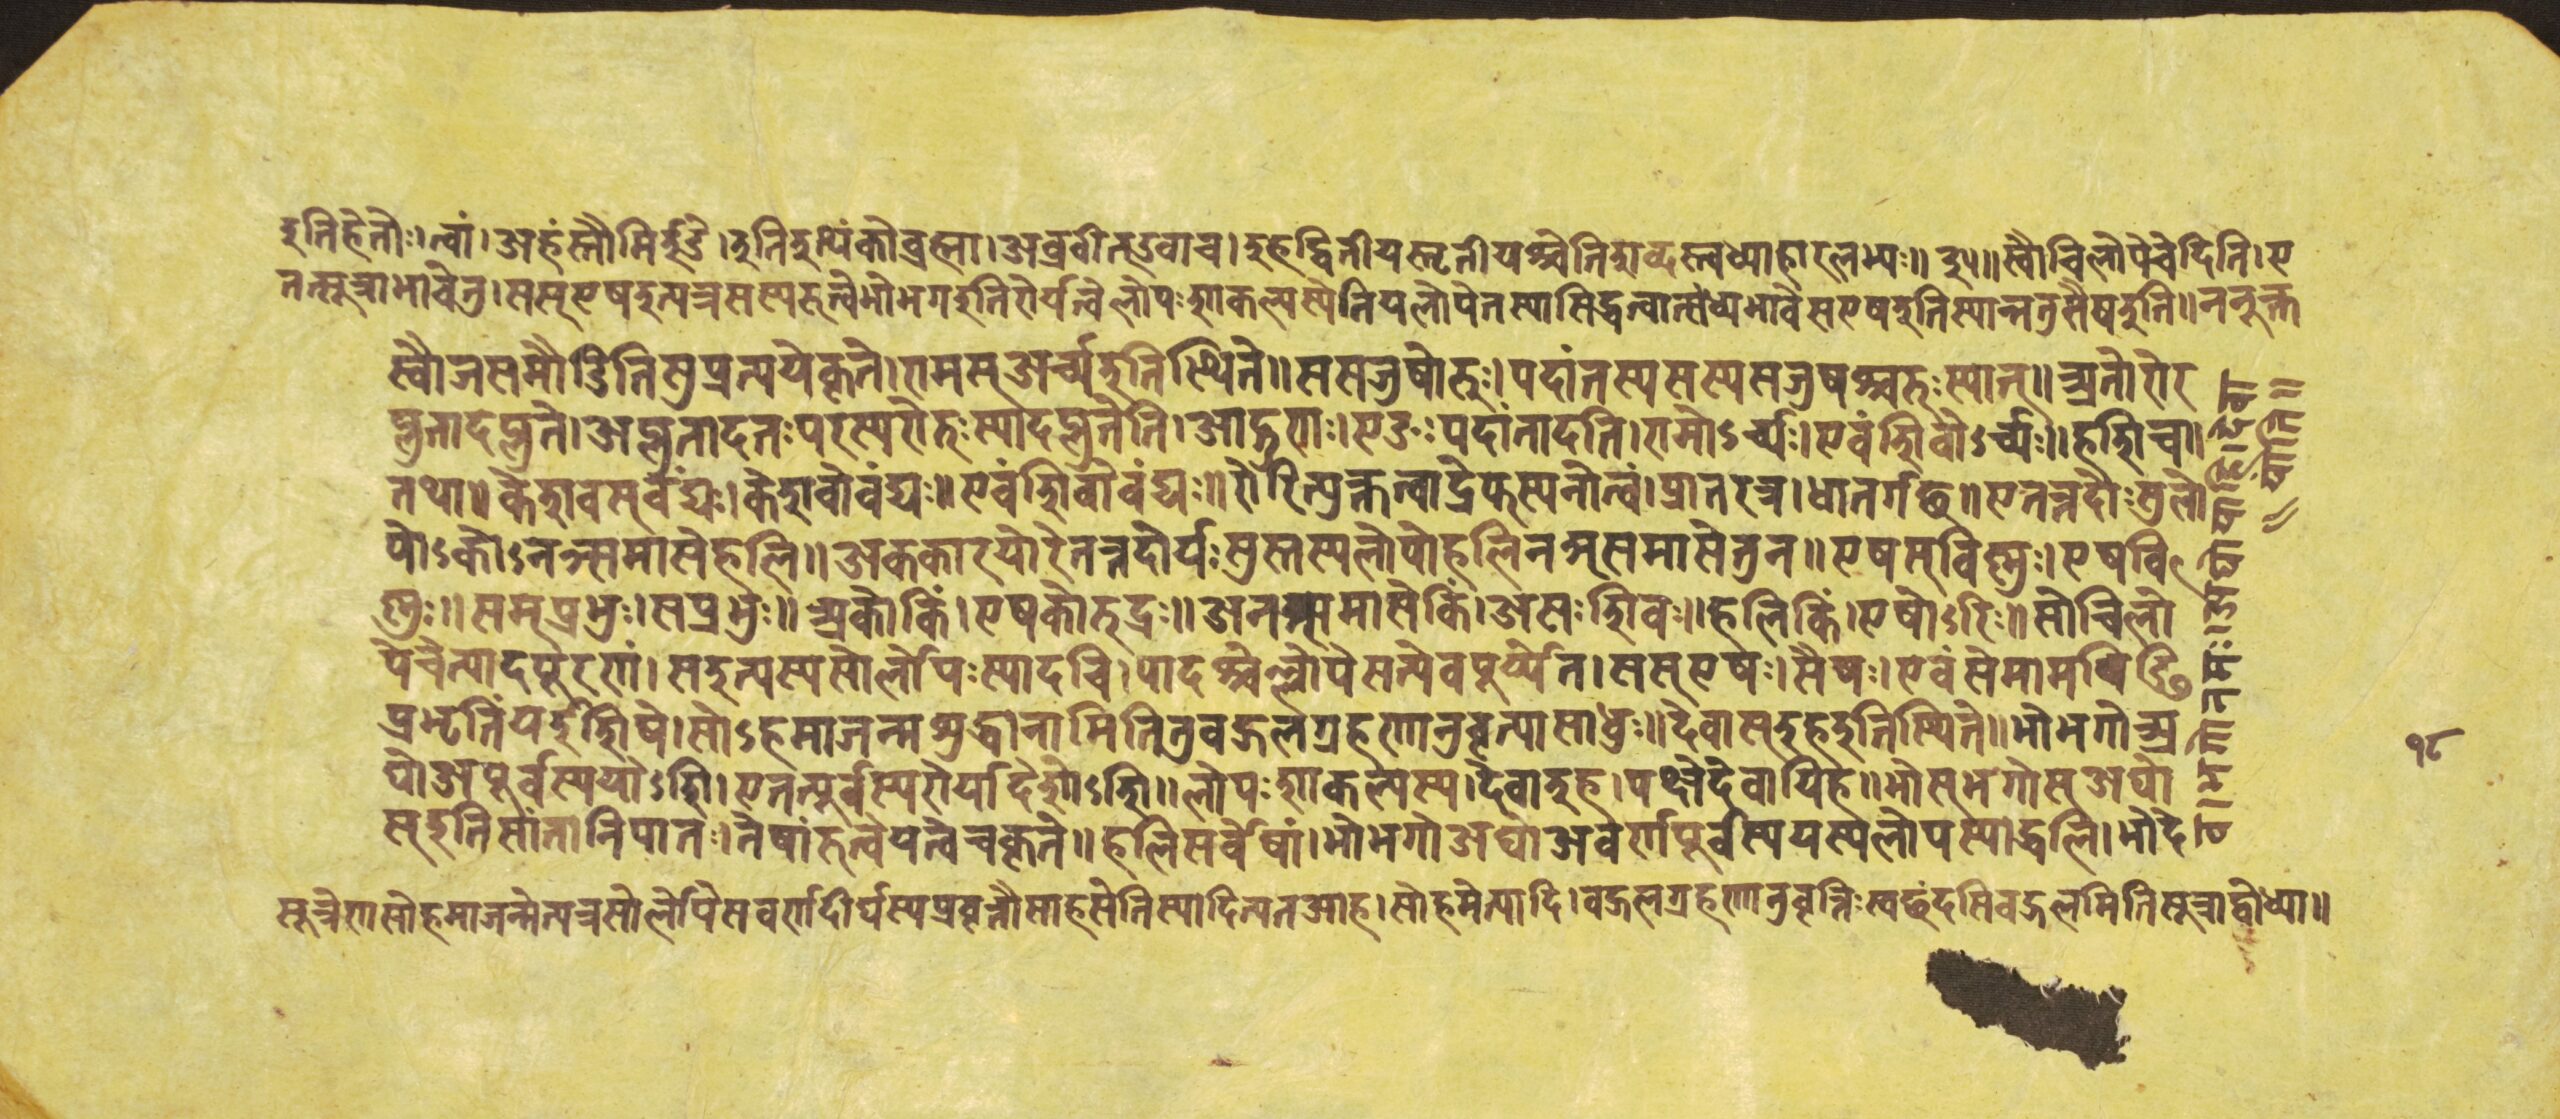 इतिहेतोः। त्वां। अहंस्तौमिईडे। इतिइत्थंकोब्रह्मा। अब्रवीत्उवाच। इहद्वितीयस्तृतीयश्चेतिशब्दस्त्वध्याहारलभ्यः॥ ३५॥ स्वौचिलोपेचेदिति। ए
तत्सूत्राभावेतु। ससूएषइत्यत्रसस्यरुत्वेभोभगइतिरोर्यत्वेलोपःशाकल्यस्येतियलोपेतस्यासिद्धत्वात्संध्यभावेसएषइतिस्यान्नतुसैषइति॥ ननूक्त
स्वौजसमौडितिसुप्रत्ययेकृते। रामस्अर्च्यइतिस्थिते॥ ससजुषोरुः। पदांतस्यसस्यसजुषश्चरुःस्यात्॥ अतोरोर
प्लुतादप्लुते। अप्लुतादतःपरस्यरोरुःस्यादप्लुतेति। आद्गुणः। एङःपदांतादति। रामोऽर्च्यः। एवंशिवोऽर्च्यः॥ हशिच॥
तथा॥ केशवस्वंद्यः। केशवोवंद्यः॥ एवंशिवोवंद्यः॥ रोरित्युक्तत्वाद्रेफस्यनोत्वं। प्रातरत्र। धातर्गछ॥ एतत्तदोःसुलो
पोऽकोऽनञ्समासेहलि॥ अककारयोरेतत्तदोर्यःसुस्तस्यलोपोहलिनञ्समासेतुन॥ एषस्विष्णुः। एषवि
ष्णुः॥ सस्प्रभुः। सप्रभुः॥ अकोकिं। एषकोरुद्रः॥ अनञ्समासेकिं। असःशिवः॥ हलिकिं। एषोऽरिः॥ सोचिलो
पेचेत्पादपूरणं। सइत्यस्यसोर्लोपःस्यादचि। पादश्चेल्लोपेसत्येवपूर्य्येत। सस्एषः। सैषः। एवंसेमामविड्ढि
प्रभृतिंयईशिषे। सोऽहमाजन्मशुद्धानामितितुबहुलग्रहणानुवृत्त्यासाधुः॥ देवास्इहइतिस्थिते॥ भोभगोअ
घोअपूर्वस्ययोऽशि। एतत्पूर्वस्यरोर्यादेशोऽशि॥ लोपःशाकल्यस्य। देवाइह। पक्षेदेवायिह॥ भोस्भगोस्अघो
स्इतिसांतानिपातः। तेषांरुत्वेयत्वेचकृते॥ हलिसर्वेषां। भोभगोअघोअवर्णपूर्वस्ययस्यलोपस्याद्धलि। भोदे
सूत्रेणसोहमाजन्मेत्यत्रसोर्लोपेसवर्णदीर्घस्यप्रवृत्तौसाहसेतिस्यादित्यतआह। सोहमेत्यादि। बहुलग्रहणानुवृत्तिःस्वछंदसिबहुलमितिसूत्राद्बोध्या॥
१८